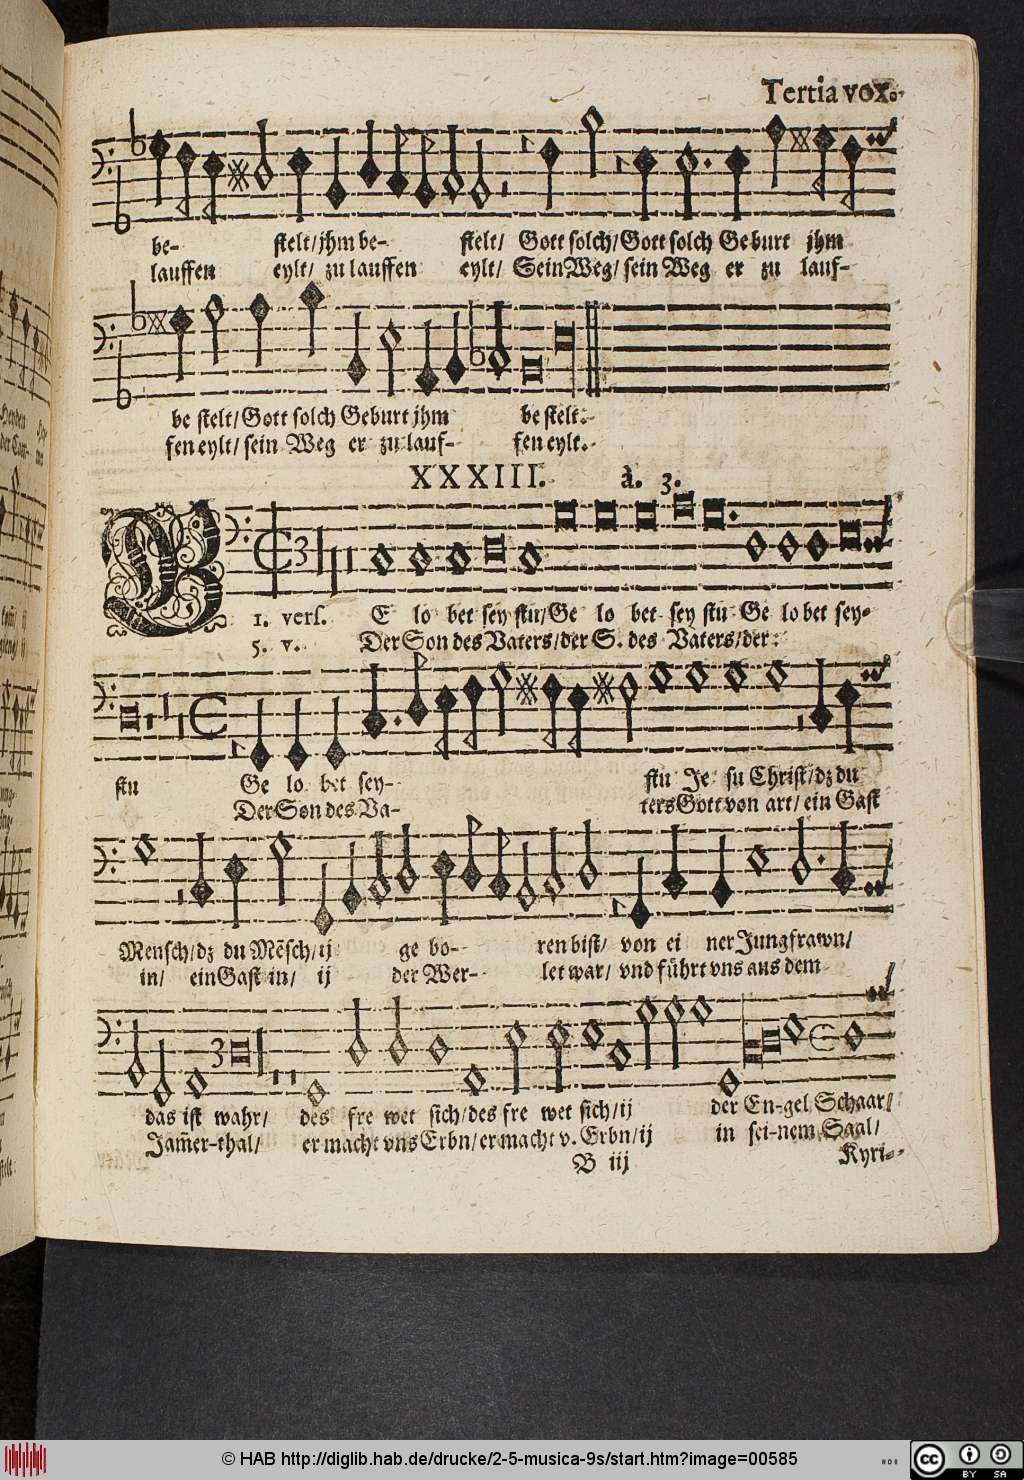 Tertia vox.
be- stelt/ jhm be- stelt/ Gott solch/ Gott solch Geburt jhm
lauffen eylt/ zu lauffen eylt/ Sein Weg/ sein Weg er zu lauf-
be stelt/ Gott solch Geburt jhm be stelt.
fen eylt/ sein Weg er zu lauf- fen eylt.
XXXIII. à. 3.
1. vers. E lo bet sey stu/ Ge lo bet sey stu Ge lo bet sey-
5. v. Der Son des Vaters/ der S. des Vaters/ der:
stu Ge lo bet sey- stu Je su Christ/ dz du
Der Son des Va- ters Gott von art/ ein Gast
Mensch/ dz du Mẽsch/ ij ge bo- ren bist/ von ei ner Jungfrawn/
in/ ein Gast in/ ij der Wer- let war/ vnd führt vns aus dem
das ist wahr/ des fre wet sich/ des fre wet sich/ ij der En-gel Schaar/
Jam̃er-thal/ er macht vns Erbn/ er macht v. Erbn/ ij in sei-nem Saal/
B iij Kyri-
© HAB http://diglib.hab.de/drucke/2-5-musica-9s/start.htm?image=00585
cc BY SA